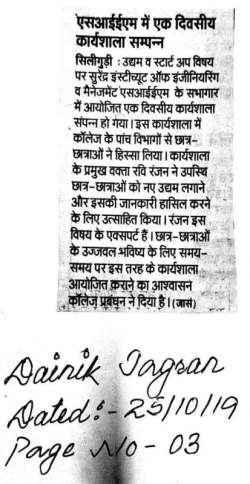 एसआईईएम में एक दिवसीय
कार्यशाला सम्पन्न
सिलीगुड़ी : उद्यम व स्टार्ट अप विषय
पर सुरेंद्र इंस्टीच्यूट ऑफ इंजीनियरिंग
व मैनेजमेंट एसआईईएम के सभागार
में आयोजित एक दिवसीय कार्यशाला
संपन्न हो गया। इस कार्यशाला में
कॉलेज के पांच विभागों से छात्र-
छात्राओं ने हिस्सा लिया। कार्यशाला
के प्रमुख वक्ता रवि रंजन ने उपस्थि
छात्र-छात्राओं को नए उद्यम लगाने
और इसकी जानकारी हासिल करने
के लिए उत्साहित किया। रंजन इस
विषय के एक्सपर्ट हैं। छात्र-छात्राओं
के उज्जवल भविष्य के लिए समय-
समय पर इस तरह के कार्यशाला
आयोजित कराने का आश्वासन
कॉलेज प्रबंधन ने दिया है। (जासं)
Dainik Jagran
Dated:- 25/10/19
Page No- 03